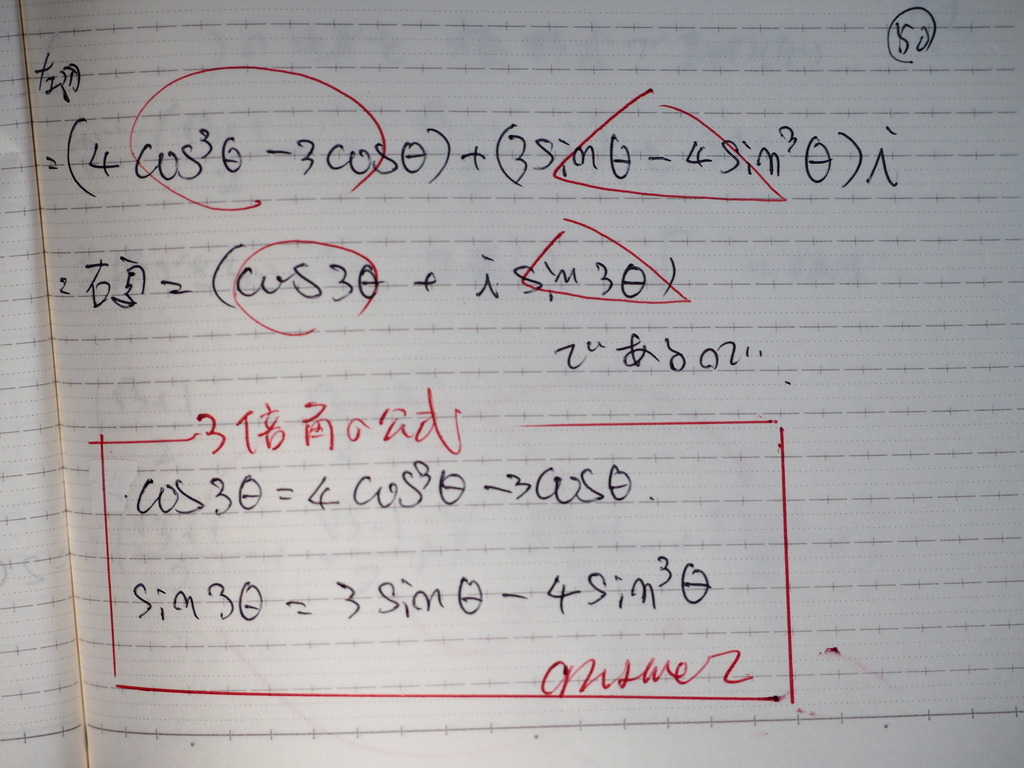 50
左辺
= (4cos³θ - 3cosθ) + (3sinθ - 4sin³θ)i
= 右辺 = (cos3θ + i sin3θ)
であるので..
3倍角の公式
cos3θ = 4cos³θ - 3cosθ.
sin3θ = 3sinθ - 4sin³θ
answer